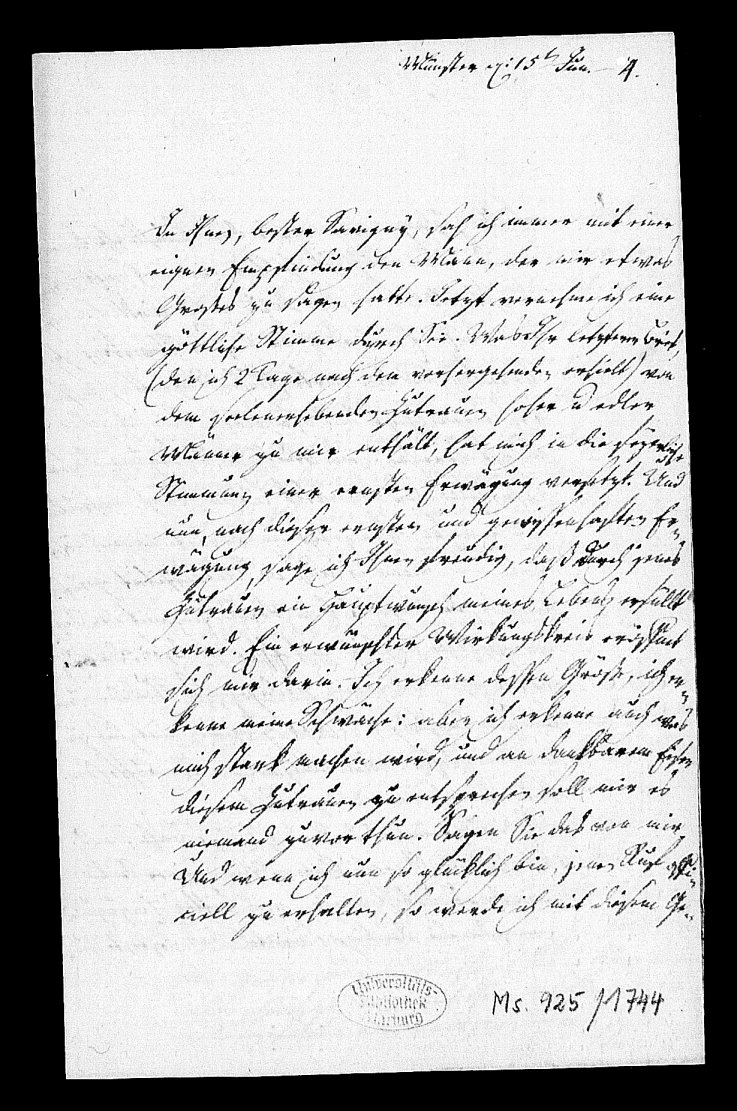 Münster d: 15t Jun. – 4.
In Ihnen, bester Savigny, sah ich immer mit einer
eignen Empfindung den Mann, der mir etwas
Großes zu sagen hatte. Jetzt vernehme ich eine
göttliche Stimme durch Sie. Was Ihr letzterer Brief,
(den ich 2 Tage nach dem vorhergehenden erhielt) von
dem seelenerhebenden Zutrauen hoher u edler
Männer zu mir enthält, hat mich in die feyerliche
Stimmung einer ernsten Erwägung versetzt. Und
nun, nach dieser ernsten und gewissenhaften Er-
wägung, sage ich Ihnen freudig, daß durch jenes
Zutrauen ein Hauptwunsch meines Lebens erfüllt
wird. Ein erwünschter Wirkungskreis eröffnet
sich mir darin. Ich erkenne dessen Größe, ich er-
kenne meine Schwäche: aber ich erkenne auch was
mich stark machen wird, und an dankbarem Eifer
diesem Zutrauen zu entsprechen soll mir es
niemand zuvorthun. Sagen Sie das von mir.
Und wenn ich nun so glücklich bin, jenen Ruf offi-
ciell zu erhalten, so werde ich mit diesem Ge-
Universitäts-
Bibliothek
Marburg
Ms. 925/1744